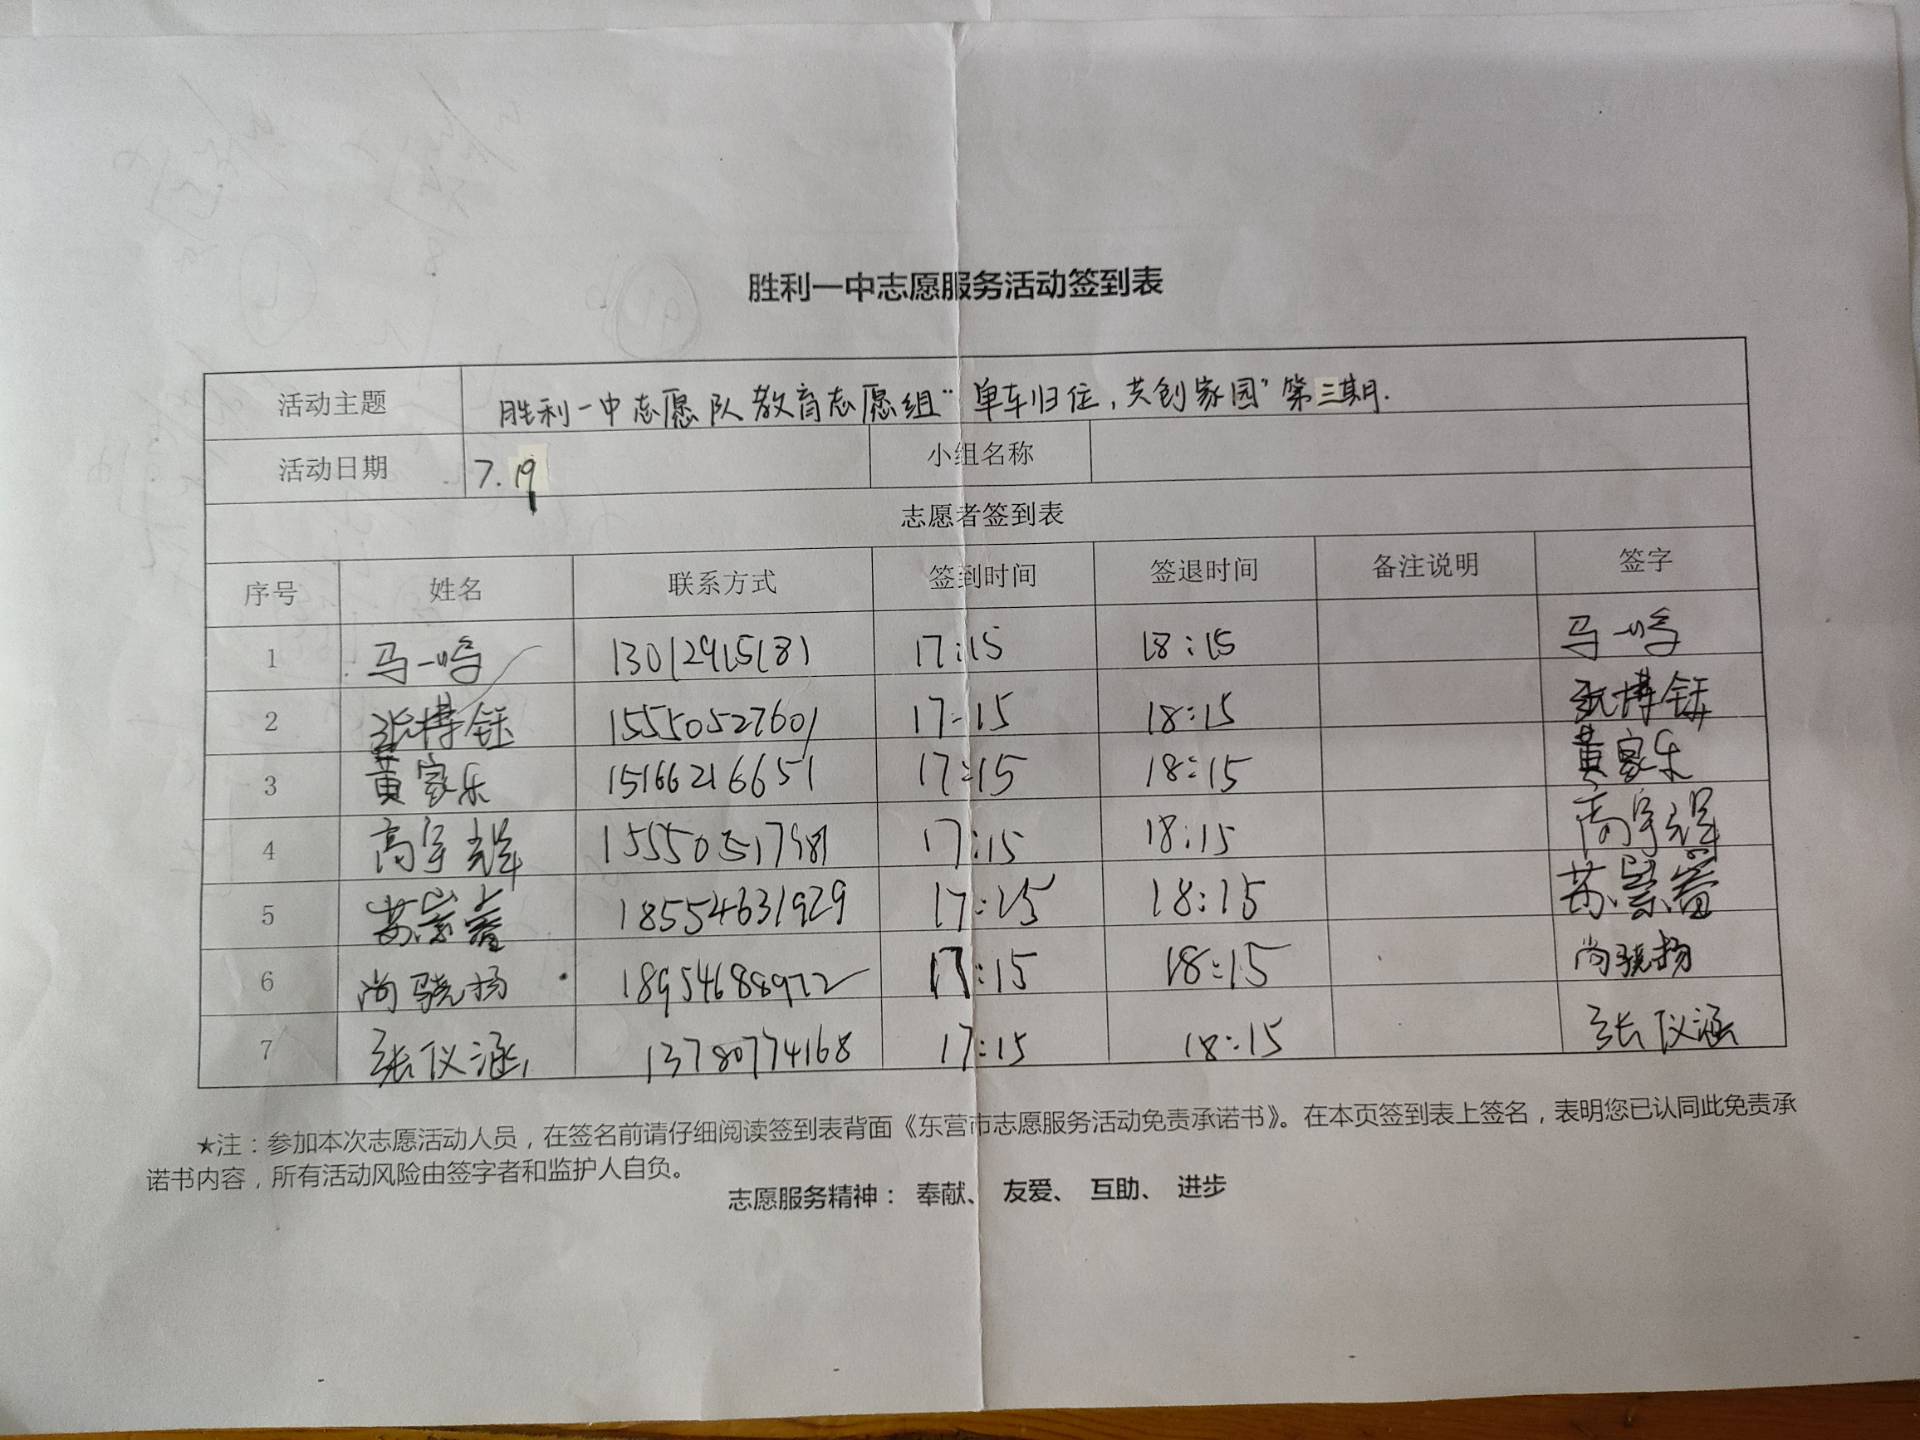 胜利一中志愿服务活动签到表
活动主题 胜利一中志愿队教育志愿组“单车归位,共创家园”第三期.
活动日期 7.19 小组名称
志愿者签到表
序号 姓名 联系方式 签到时间 签退时间 备注说明 签字
1 马一鸣 13012915181 17:15 18:15 马一鸣
2 张博钰 15550527601 17:15 18:15 张博钰
3 黄家乐 15166216651 17:15 18:15 黄家乐
4 高宇辉 15550517981 17:15 18:15 高宇辉
5 18554631929 17:15 18:15
6 尚骁扬 18954688972 17:15 18:15 尚骁扬
7 张仪涵 13780774168 17:15 18:15 张仪涵
★注:参加本次志愿活动人员,在签名前请仔细阅读签到表背面《东营市志愿服务活动免责承诺书》。在本页签到表上签名,表明您已认同此免责承
诺书内容,所有活动风险由签字者和监护人自负。
志愿服务精神: 奉献、 友爱、 互助、 进步